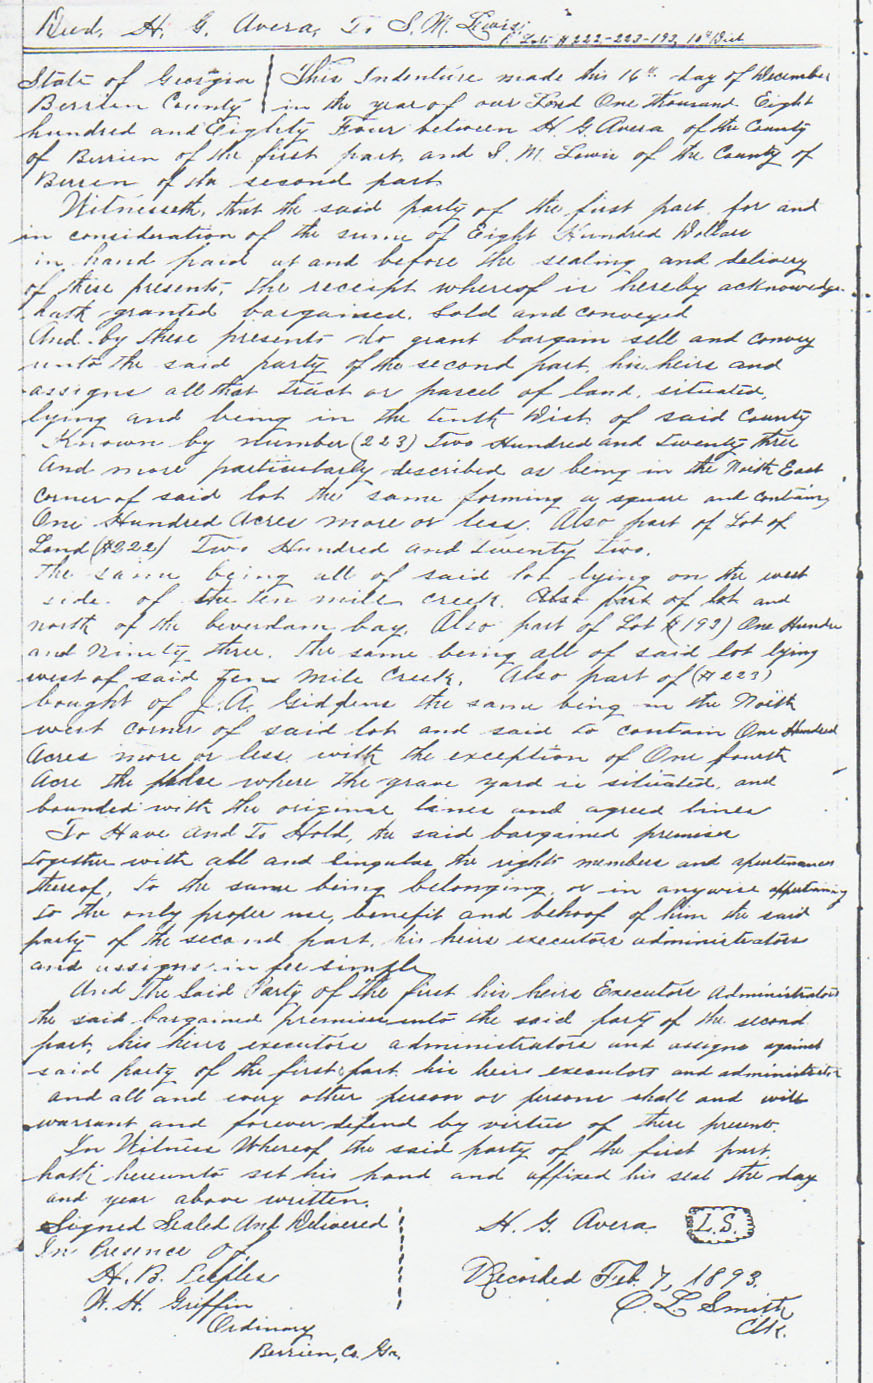 Deed, H. G. Avera, To S. M. Lewis,
P. Lots # 222-223-193, 10th Dist
State of Georgia | This Indenture made this 16th day of December
Berrien County | in the year of our Lord One thousand Eight
hundred and Eighty Four between H. G. Avera of the County
of Berrien of the first part, and S. M. Lewis of the County of
Berrien of the second part
Witnesseth, that the said party of the first part for and
in consideration of the sume of Eight Hundred Dollars
in hand paid at and before the sealing and delivery
of these presents, the receipt whereof is hereby acknowedge
hath granted bargained, Sold and conveyed
And by these presents do grant bargain sell and convey
unto the said party of the second part, his heirs and
assigns all that tract or parcel of land, situated,
lying and being in the tenth Dist of said County
Known by number (223) Two Hundred and twenty three
And more particularly described as being in the North East
corner of said lot the same forming a square and containing
One Hundred Acres more or less. Also part of Lot of
Land (#222) Two Hundred and twenty two.
The same being all of said lot lying on the west
side of the Ten mile creek. Also part of lot and
north of the beverdam bay. Also part of Lot #(193) One Hundre
and Ninety three. The same being all of said lot lying
west of said Ten Mile Creek. Also part of (#223)
bought of J. A. Giddens the same being in the North
west corner of said lot and said to contain One Hundred
Acres more or less, with the exception of One fourth
Acre the place where the grave yard is situated, and
bounded with the original lines and agreed lines
To Have And To Hold, the said bargained premises
together with all and singular the rights members and apurtenances
thereof, to the same being belonging, or in anywise appertaining
to the only proper use, benefit and behoof of him the said
party of the second part, his heirs executors administrators
and assigns in fee simple
And The Said Party of the first his heirs Executors Administrators
the said bargained premises unto the said party of the second
part, his heirs executors administrators and assigns against
said party of the first part his heirs executors and administrator
and all and every other person or persons shall and will
warrant and forever defend by virtue of these presents.
In Witness Whereof the said party of the first part,
hath hereunto set his hand and affixed his seal the day
and year above written.
Signed Sealed And Delivered
In Presence Of,
H. B. Peeples
W. H. Griffin
Ordinary
Berrien, Co. Ga.
H. G. Avera L.S.
Recorded Feb. 7, 1893.
C. L. Smith
Clk.